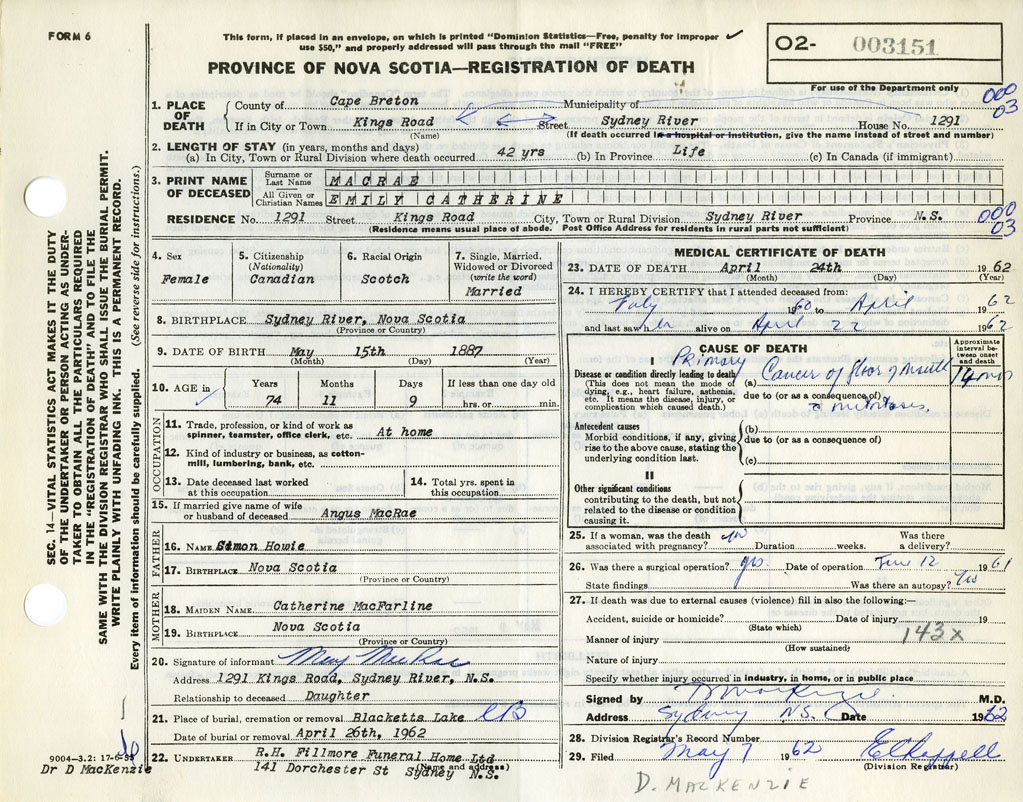 FORM 6
This form, if placed in an envelope, on which is printed "Dominion Statistics—Free, penalty for improper
use $50," and properly addressed will pass through the mail "FREE"
PROVINCE OF NOVA SCOTIA—REGISTRATION OF DEATH
O2- 003151
For use of the Department only
1. PLACE OF DEATH
County of Cape Breton Municipality of
000
03
If in City or Town Kings Road Street Sydney River House No. 1291
(Name) (If death occurred in a hospital or institution, give the name instead of street and number)
2. LENGTH OF STAY (in years, months and days)
(a) In City, Town or Rural Division where death occurred 42 yrs (b) In Province Life (c) In Canada (if immigrant)
3. PRINT NAME OF DECEASED
Surname or Last Name MACRAE
All Given or Christian Names EMILY CATHERINE
RESIDENCE No. 1291 Street Kings Road City, Town or Rural Division Sydney River Province N.S.
000
03
(Residence means usual place of abode. Post Office Address for residents in rural parts not sufficient)
4. Sex
Female
5. Citizenship
(Nationality)
Canadian
6. Racial Origin
Scotch
7. Single, Married,
Widowed or Divorced
(write the word)
Married
8. BIRTHPLACE Sydney River, Nova Scotia
(Province or Country)
9. DATE OF BIRTH May 15th 1887
(Month) (Day) (Year)
10. AGE in
Years Months Days If less than one day old
74 11 9 hrs. or min.
OCCUPATION
11. Trade, profession, or kind of work as
spinner, teamster, office clerk, etc. At home
12. Kind of industry or business, as cotton-
mill, lumbering, bank, etc.
13. Date deceased last worked
at this occupation
14. Total yrs. spent in
this occupation
15. If married give name of wife
or husband of deceased Angus MacRae
FATHER
16. NAME Simon Howie
17. BIRTHPLACE Nova Scotia
(Province or Country)
MOTHER
18. MAIDEN NAME Catherine MacFarline
19. BIRTHPLACE Nova Scotia
(Province or Country)
20. Signature of informant May MacRae
Address 1291 Kings Road, Sydney River, N.S.
Relationship to deceased Daughter
21. Place of burial, cremation or removal Blacketts Lake CB
Date of burial or removal April 26th, 1962
22. UNDERTAKER R.H. Fillmore Funeral Home Ltd
(Name and address)
141 Dorchester St Sydney N.S.
MEDICAL CERTIFICATE OF DEATH
23. DATE OF DEATH April 24th 1962
(Month) (Day) (Year)
24. I HEREBY CERTIFY that I attended deceased from:
July 1960 to April 1962
and last saw her alive on April 22 1962
CAUSE OF DEATH
Approximate
interval be-
tween onset
and death
I
Primary
Disease or condition directly leading to death
(This does not mean the mode of
dying, e.g., heart failure, asthenia,
etc. It means the disease, injury, or
complication which caused death.)
(a) Cancer of floor of Mouth
14 mos
due to (or as a consequence of)
Antecedent causes
Morbid conditions, if any, giving
rise to the above cause, stating the
underlying condition last.
(b)
due to (or as a consequence of)
(c)
II
Other significant conditions
contributing to the death, but not
related to the disease or condition
causing it.
25. If a woman, was the death
associated with pregnancy? Duration weeks. Was there
a delivery?
26. Was there a surgical operation? yes Date of operation June 12 1961
State findings Was there an autopsy?
27. If death was due to external causes (violence) fill in also the following:—
Accident, suicide or homicide? Date of injury 19
(State which)
143x
Manner of injury
(How sustained)
Nature of injury
Specify whether injury occurred in industry, in home, or in public place
Signed by D MacKenzie M.D.
Address Sydney N.S. Date 1962
28. Division Registrar's Record Number
29. Filed May 7 1962
(Division Registrar)
D. MACKENZIE
SEC. 14—VITAL STATISTICS ACT MAKES IT THE DUTY
OF THE UNDERTAKER OR PERSON ACTING AS UNDER-
TAKER TO OBTAIN ALL THE PARTICULARS REQUIRED
IN THE "REGISTRATION OF DEATH" AND TO FILE THE
SAME WITH THE DIVISION REGISTRAR WHO SHALL ISSUE THE BURIAL PERMIT.
WRITE PLAINLY WITH UNFADING INK. THIS IS A PERMANENT RECORD.
Every item of information should be carefully supplied. (See reverse side for instructions.)
9004—3.2: 17-6-
Dr D MacKenzie